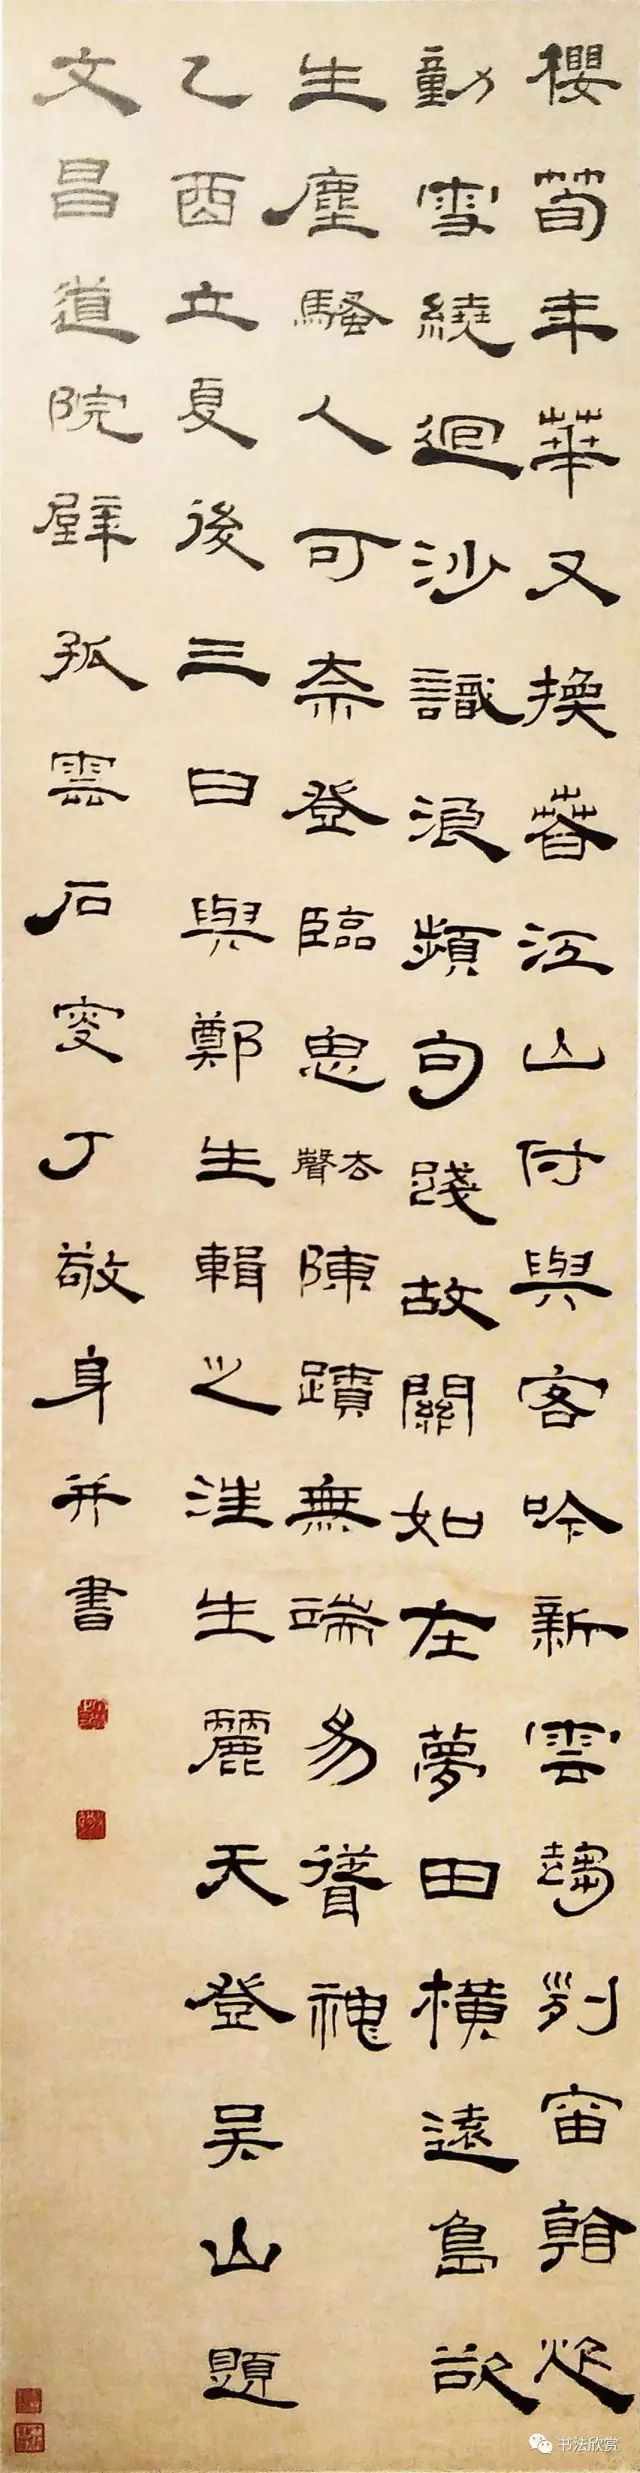 櫻筍年華又換春江山付與客吟新雲趨列宙
動雪繞迴沙識浪頻句踐故關如在夢田橫遠島欲
生塵騷人可奈登臨思去聲陳蹟無端易聳神
乙酉立夏後三日與鄭生輯之汪生麗天登吳山題
文昌道院壁孤雲石叟丁敬身并書
书法欣赏